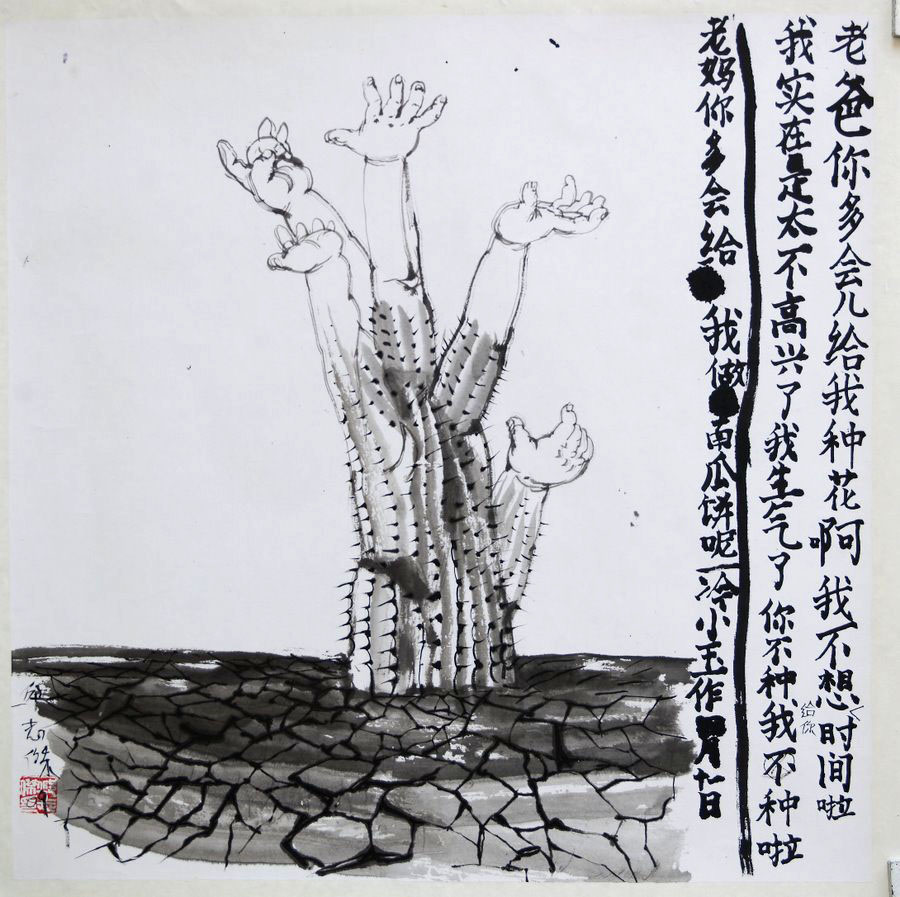 老爸你多会儿给我种花啊我不想给你时间啦
我实在是太不高兴了我生气了你不种我不种啦
老妈你多会给我做南瓜饼呢一冷小玉作 月十一日
志杰